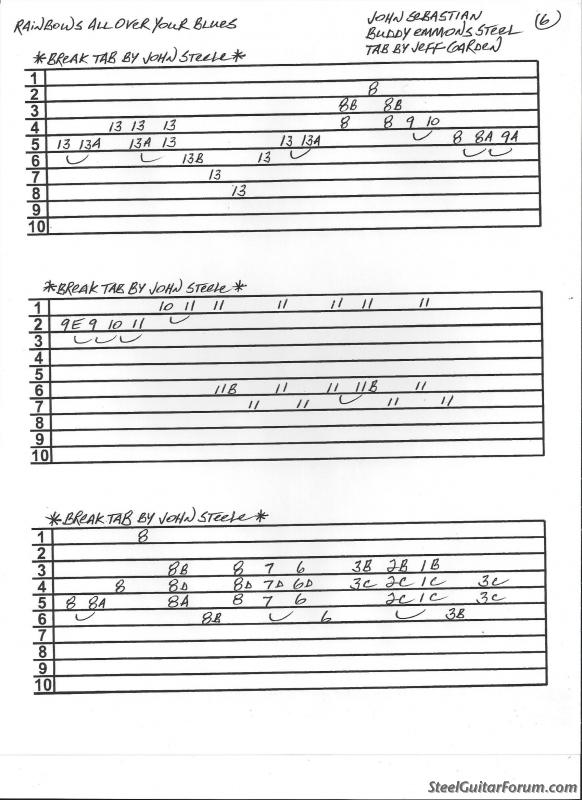 RAINBOWS ALL OVER YOUR BLUES
JOHN SEBASTIAN
BUDDY EMMONS STEEL
TAB BY JEFF GARDEN
(6)
*BREAK TAB BY JOHN STEELE*
1
2 8
3 8B 8B
4 13 13 13 8 8 9 10
5 13 13A 13A 13 13 13A 8 8A 9A
6 13B 13
7 13
8 13
9
10
*BREAK TAB BY JOHN STEELE*
1 10 11 11 11 11 11 11
2 9E 9 10 11
3
4
5
6 11B 11 11 11B 11
7 11 11 11 11
8
9
10
*BREAK TAB BY JOHN STEELE*
1 8
2
3 8B 8 7 6 3B 2B 1B
4 8 8D 8D 7D 6D 3C 2C 1C 3C
5 8 8A 8A 8 7 6 2C 1C 3C
6 8B 6 3B
7
8
9
10
SteelGuitarForum.com